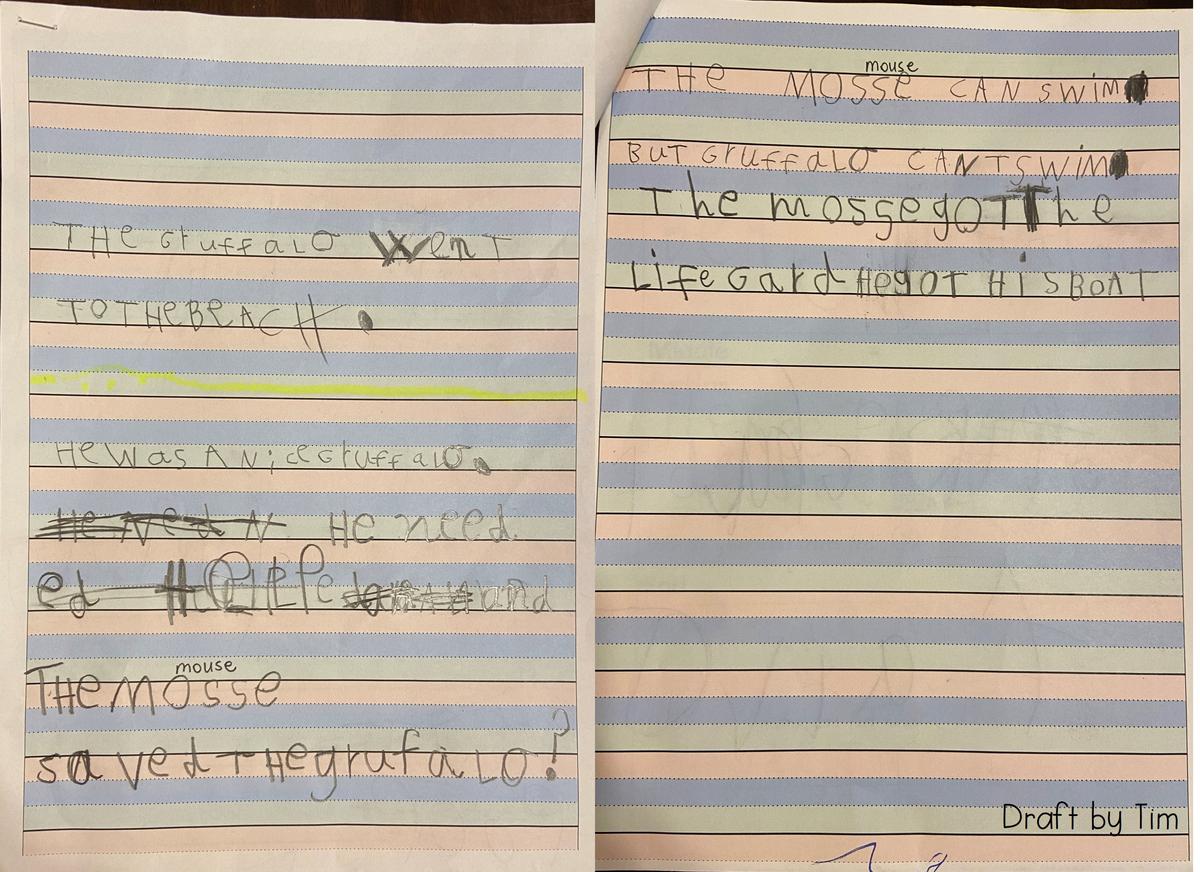 THe Gruffalo Went
TO THE BEACH.
He was A Nice Gruffalo.
He Ned N He need
ed Help and
mouse
THe mosse
saved THe grufalo!
mouse
THe MOSSE CAN SWIM
BUT Gruffalo CANT SWiM
The mosse goT The
Life Gard He goT HiS BOAT
Draft by Tim